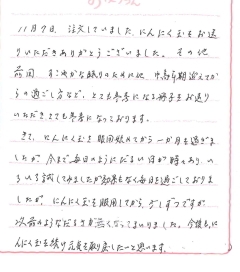 11月7日、注文していました、にんにく玉をお送
りいただきありがとうございました。その他
前回、すこやかな眠りのために他、中高年期迎えてか
らの過ごし方など、とても参考になる冊子をお送り
いただき、とても参考になっております。
さて、にんにく玉を服用始めてから一か月を過ぎま
したが、今まで毎日のようにだるい日が時々あり、い
ろいろ試してみましたが効果もなく毎日を過ごしておりま
したが、にんにく玉を服用してから、少しずつですが
以前のようなだるさが無くなってまいりました。今後もに
んにく玉を続け元気を取り戻したーと思います。